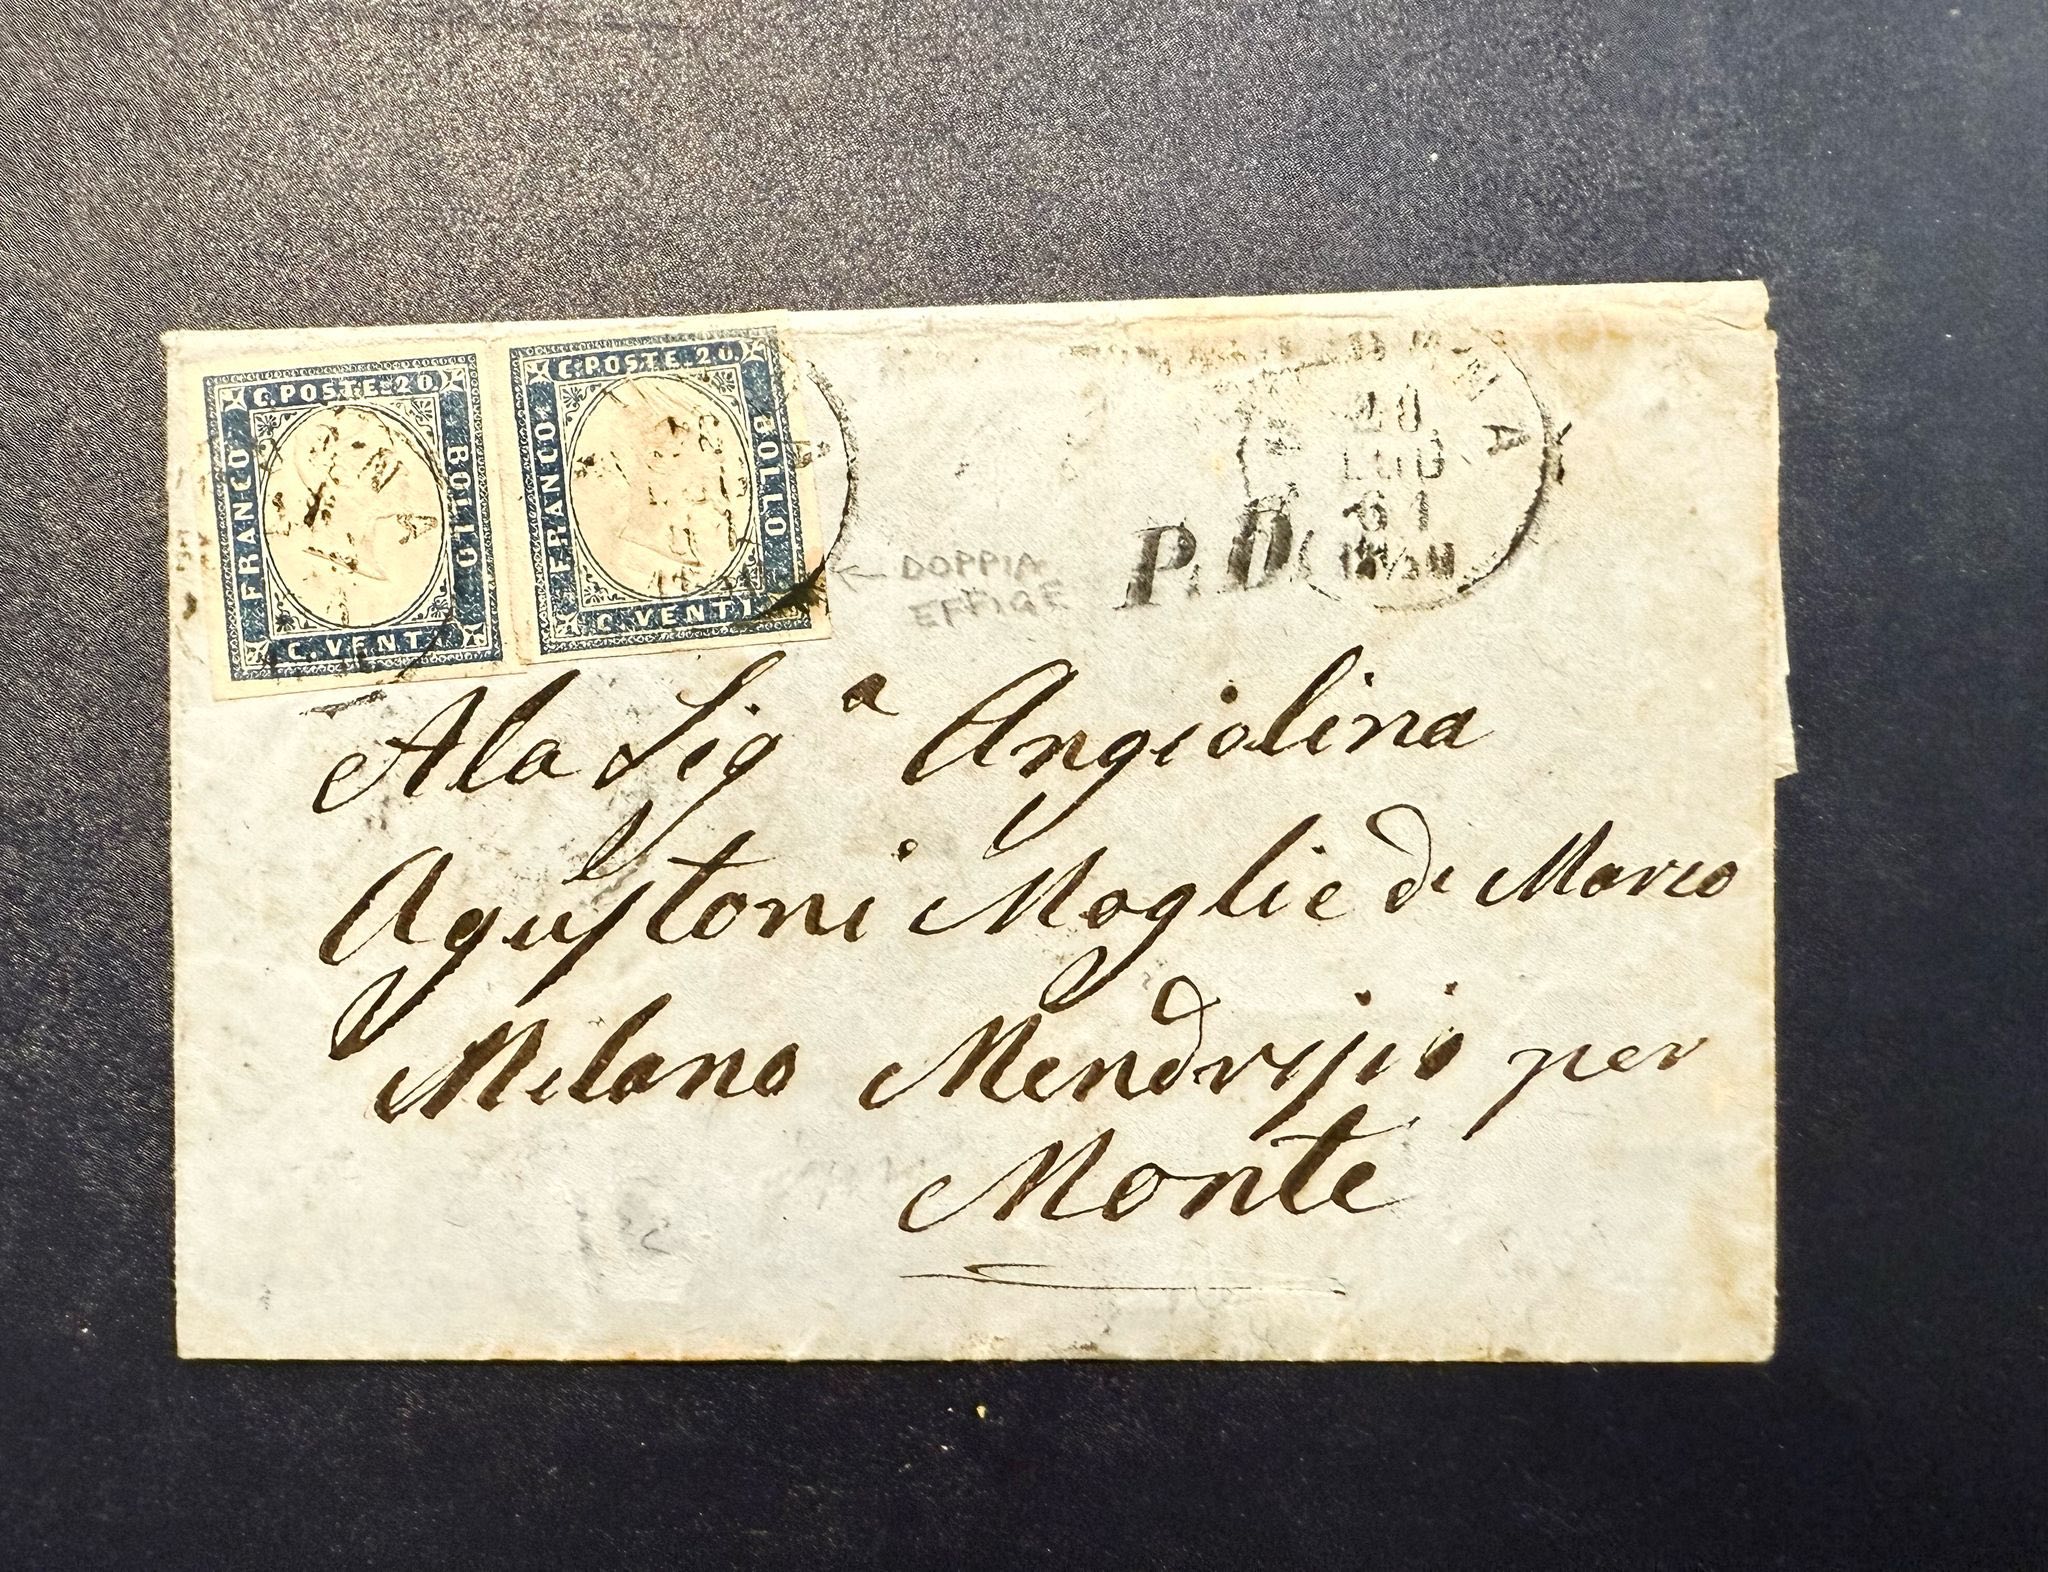 C. POSTE. 20.
FRANCO
BOLLO
C. VENTI
C. POSTE. 20.
FRANCO
BOLLO
C. VENTI
LUG
61
P.D.
← DOPPIA
EFFIGE
Ala Sigª Angiolina
Agustoni Moglie di Marco
Milano Mendrisio per
Monte